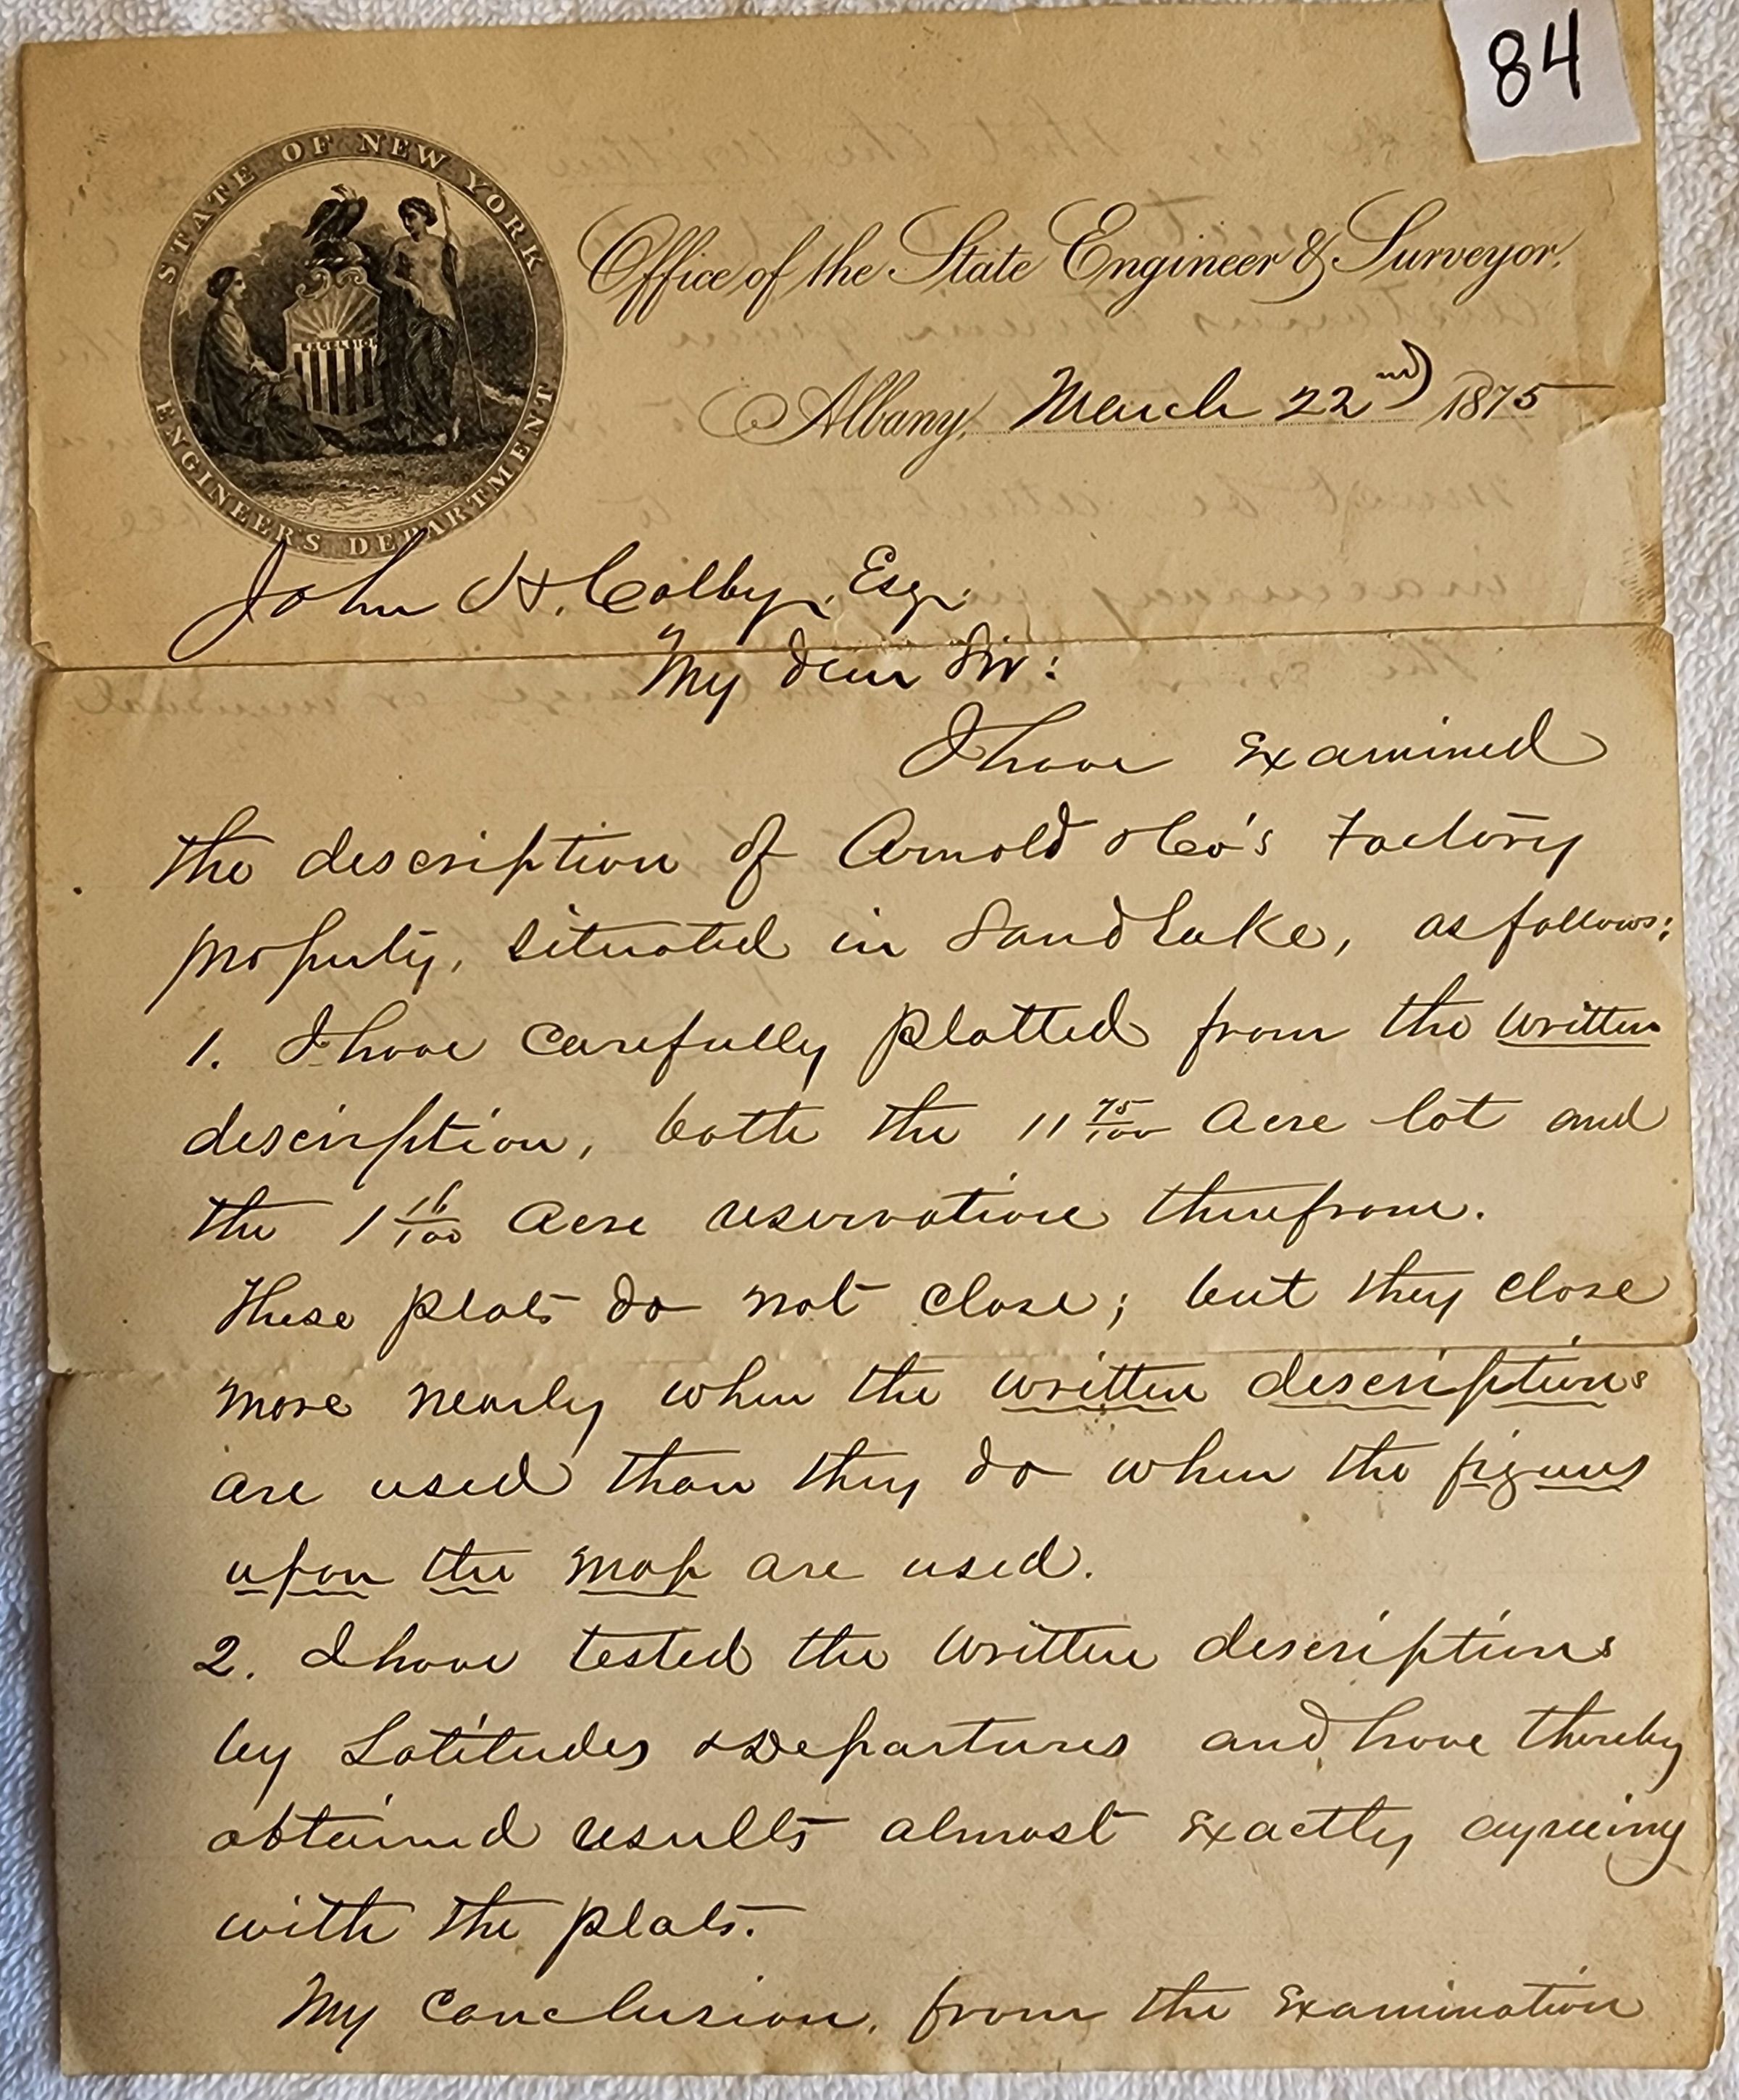 84
STATE OF NEW YORK
EXCELSIOR
ENGINEER'S DEPARTMENT
Office of the State Engineer & Surveyor.
Albany, March 22nd 1875
John H. Colby, Esq.
My dear Sir:
I have examined
the description of Arnold & Co's Factory
property, situated in Sand Lake, as follows:
1. I have carefully platted from the written
description, both the 11 75/100 Acre lot and
the 1 16/100 Acre reservation therefrom.
These plats do not close; but they close
more nearly when the written descriptions
are used than they do when the figures
upon the map are used.
2. I have tested the written descriptions
by Latitudes & Departures and have thereby
obtained results almost exactly agreeing
with the plats.
My conclusion, from the examination